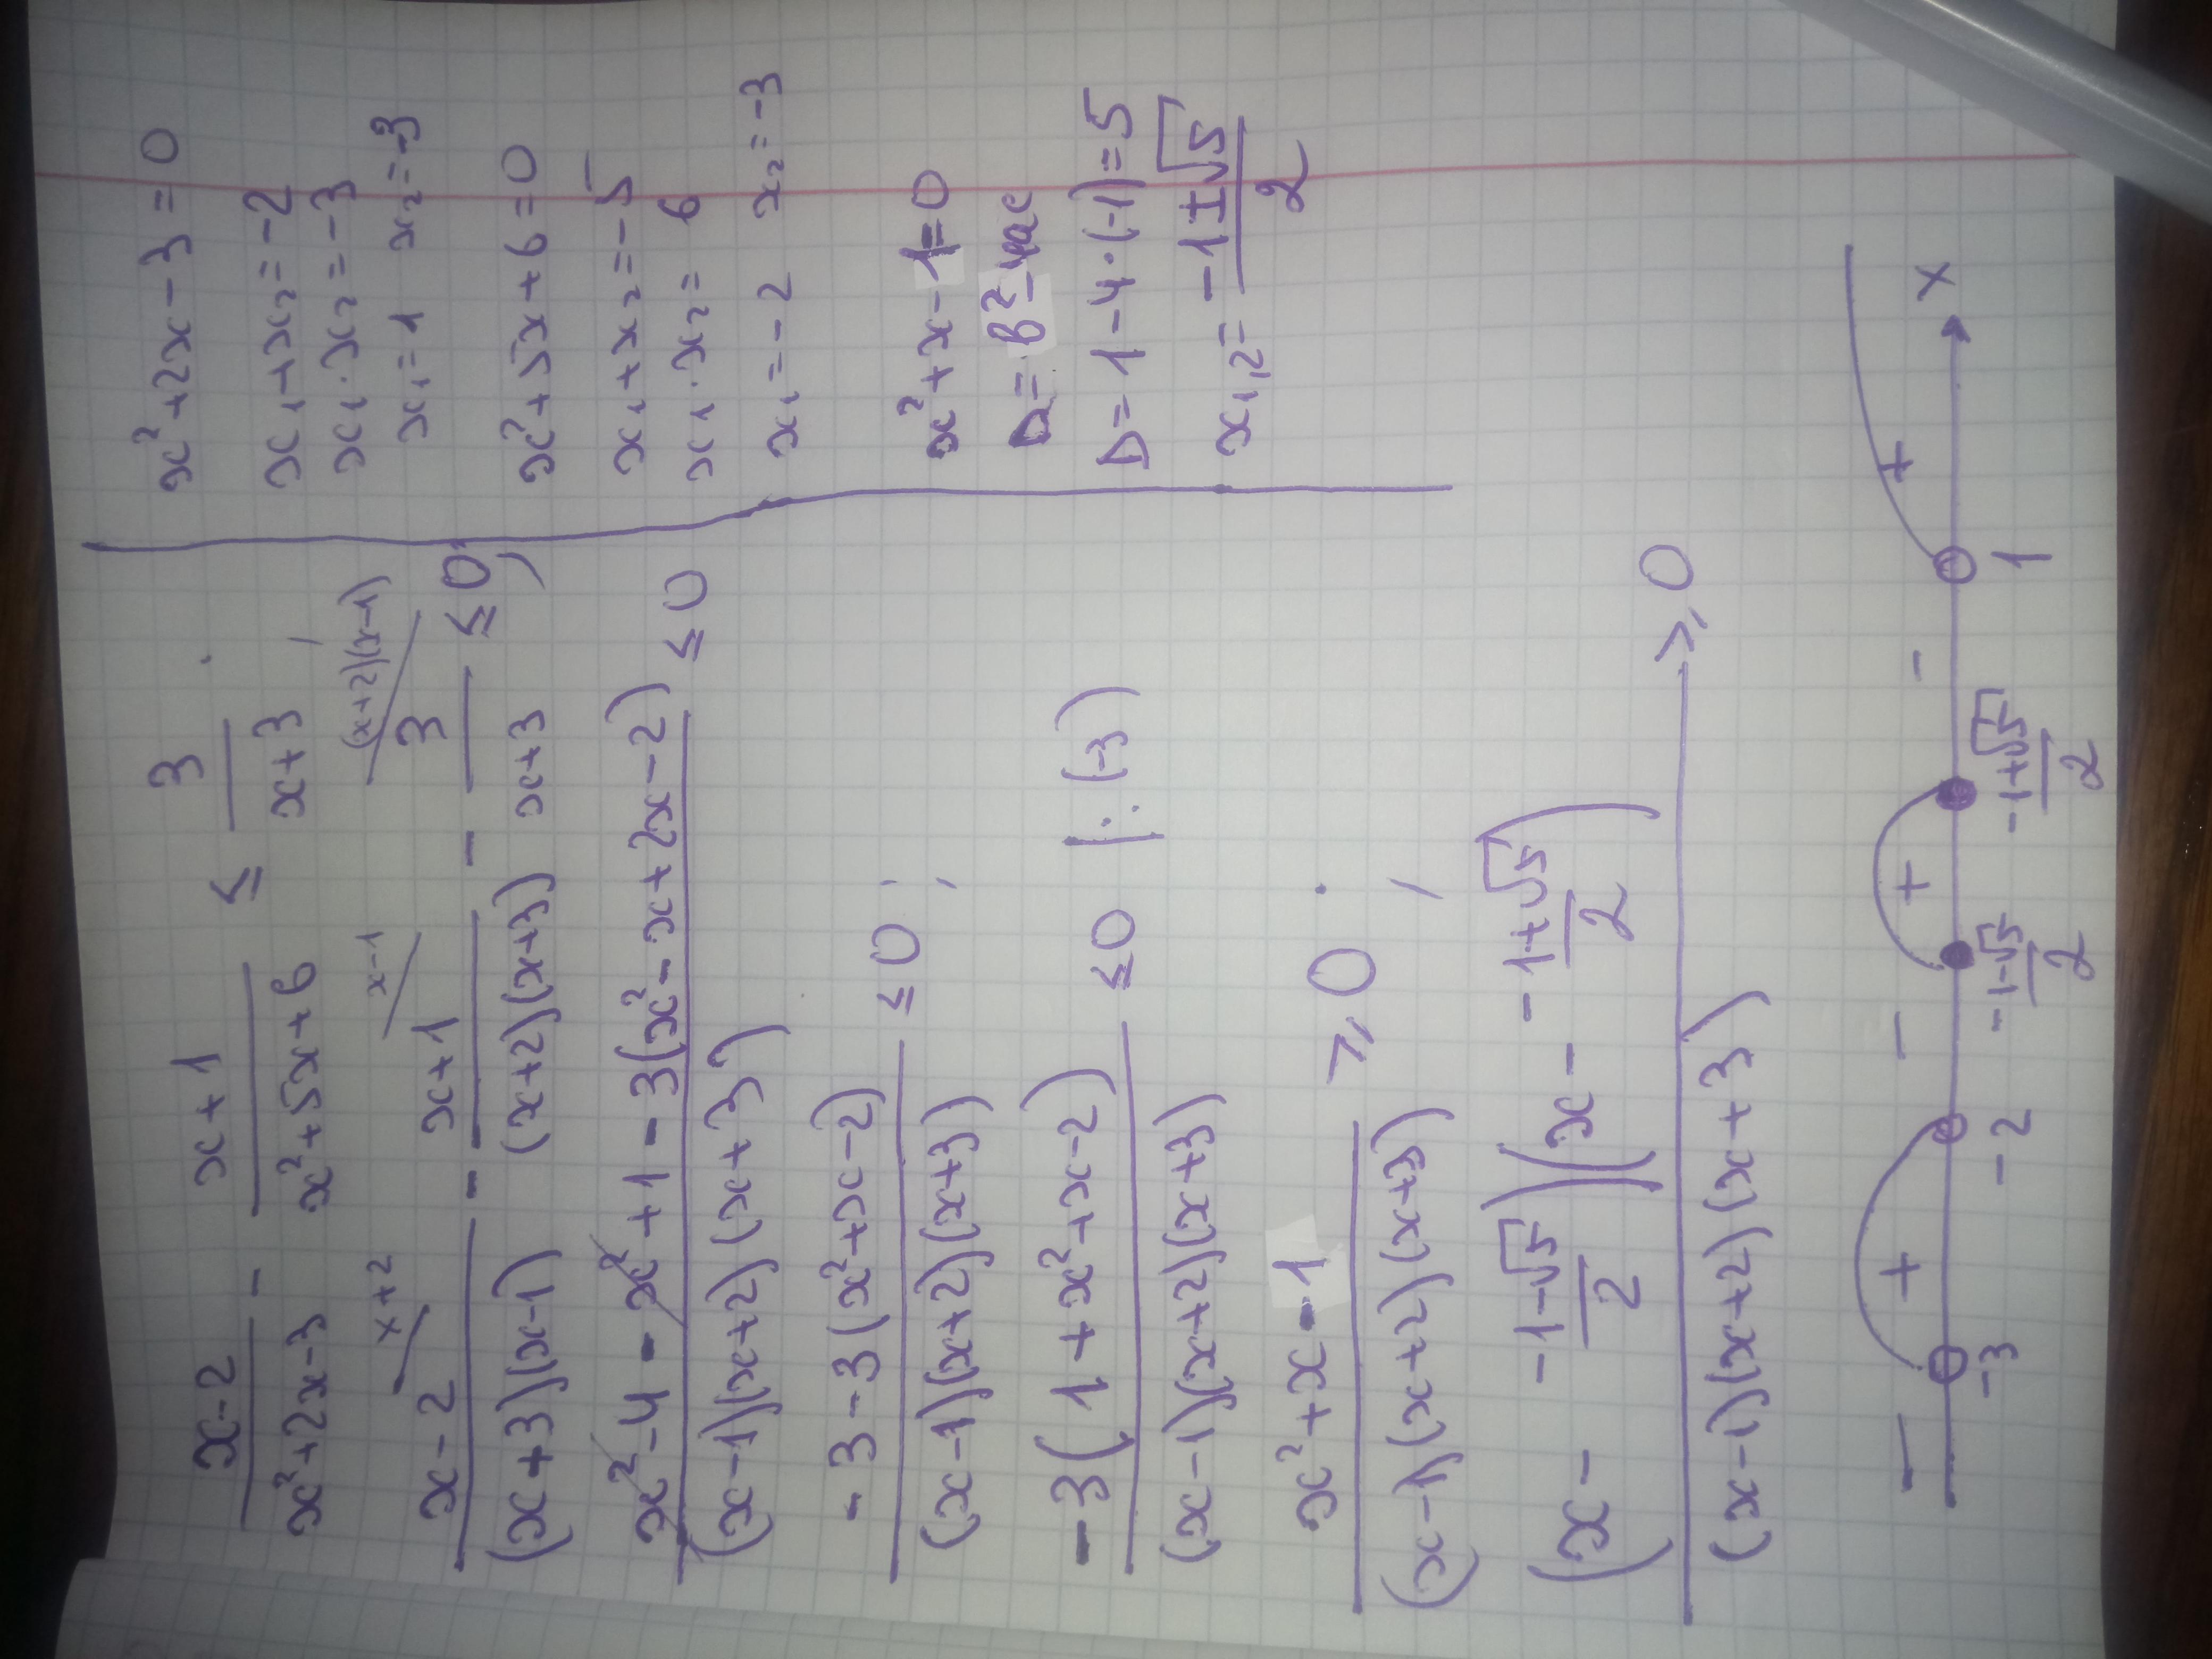 (x-2)/(x²+2x-3) - (x+1)/(x²+5x+6) ≤ 3/(x+3) ;
x+2 x-1 (x+2)(x-1)
(x-2)/((x+3)(x-1)) - (x+1)/((x+2)(x+3)) - 3/(x+3) ≤ 0;
(x²-4-x²+1-3(x²-x+2x-2))/((x-1)(x+2)(x+3)) ≤ 0
(-3-3(x²+x-2))/((x-1)(x+2)(x+3)) ≤ 0;
(-3(1+x²+x-2))/((x-1)(x+2)(x+3)) ≤ 0 |:(-3)
(x²+x-1)/((x-1)(x+2)(x+3)) ⩾ 0;
((x - (-1-√5)/2)(x - (-1+√5)/2))/((x-1)(x+2)(x+3)) ⩾ 0
- + - + - +
-3 -2 (-1-√5)/2 (-1+√5)/2 1 x
x²+2x-3=0
x₁+x₂=-2
x₁·x₂=-3
x₁=1 x₂=-3
x²+5x+6=0
x₁+x₂=-5
x₁·x₂=6
x₁=-2 x₂=-3
x²+x-1=0
D=b²-4ac
D=1-4·(-1)=5
x₁,₂=(-1±√5)/2